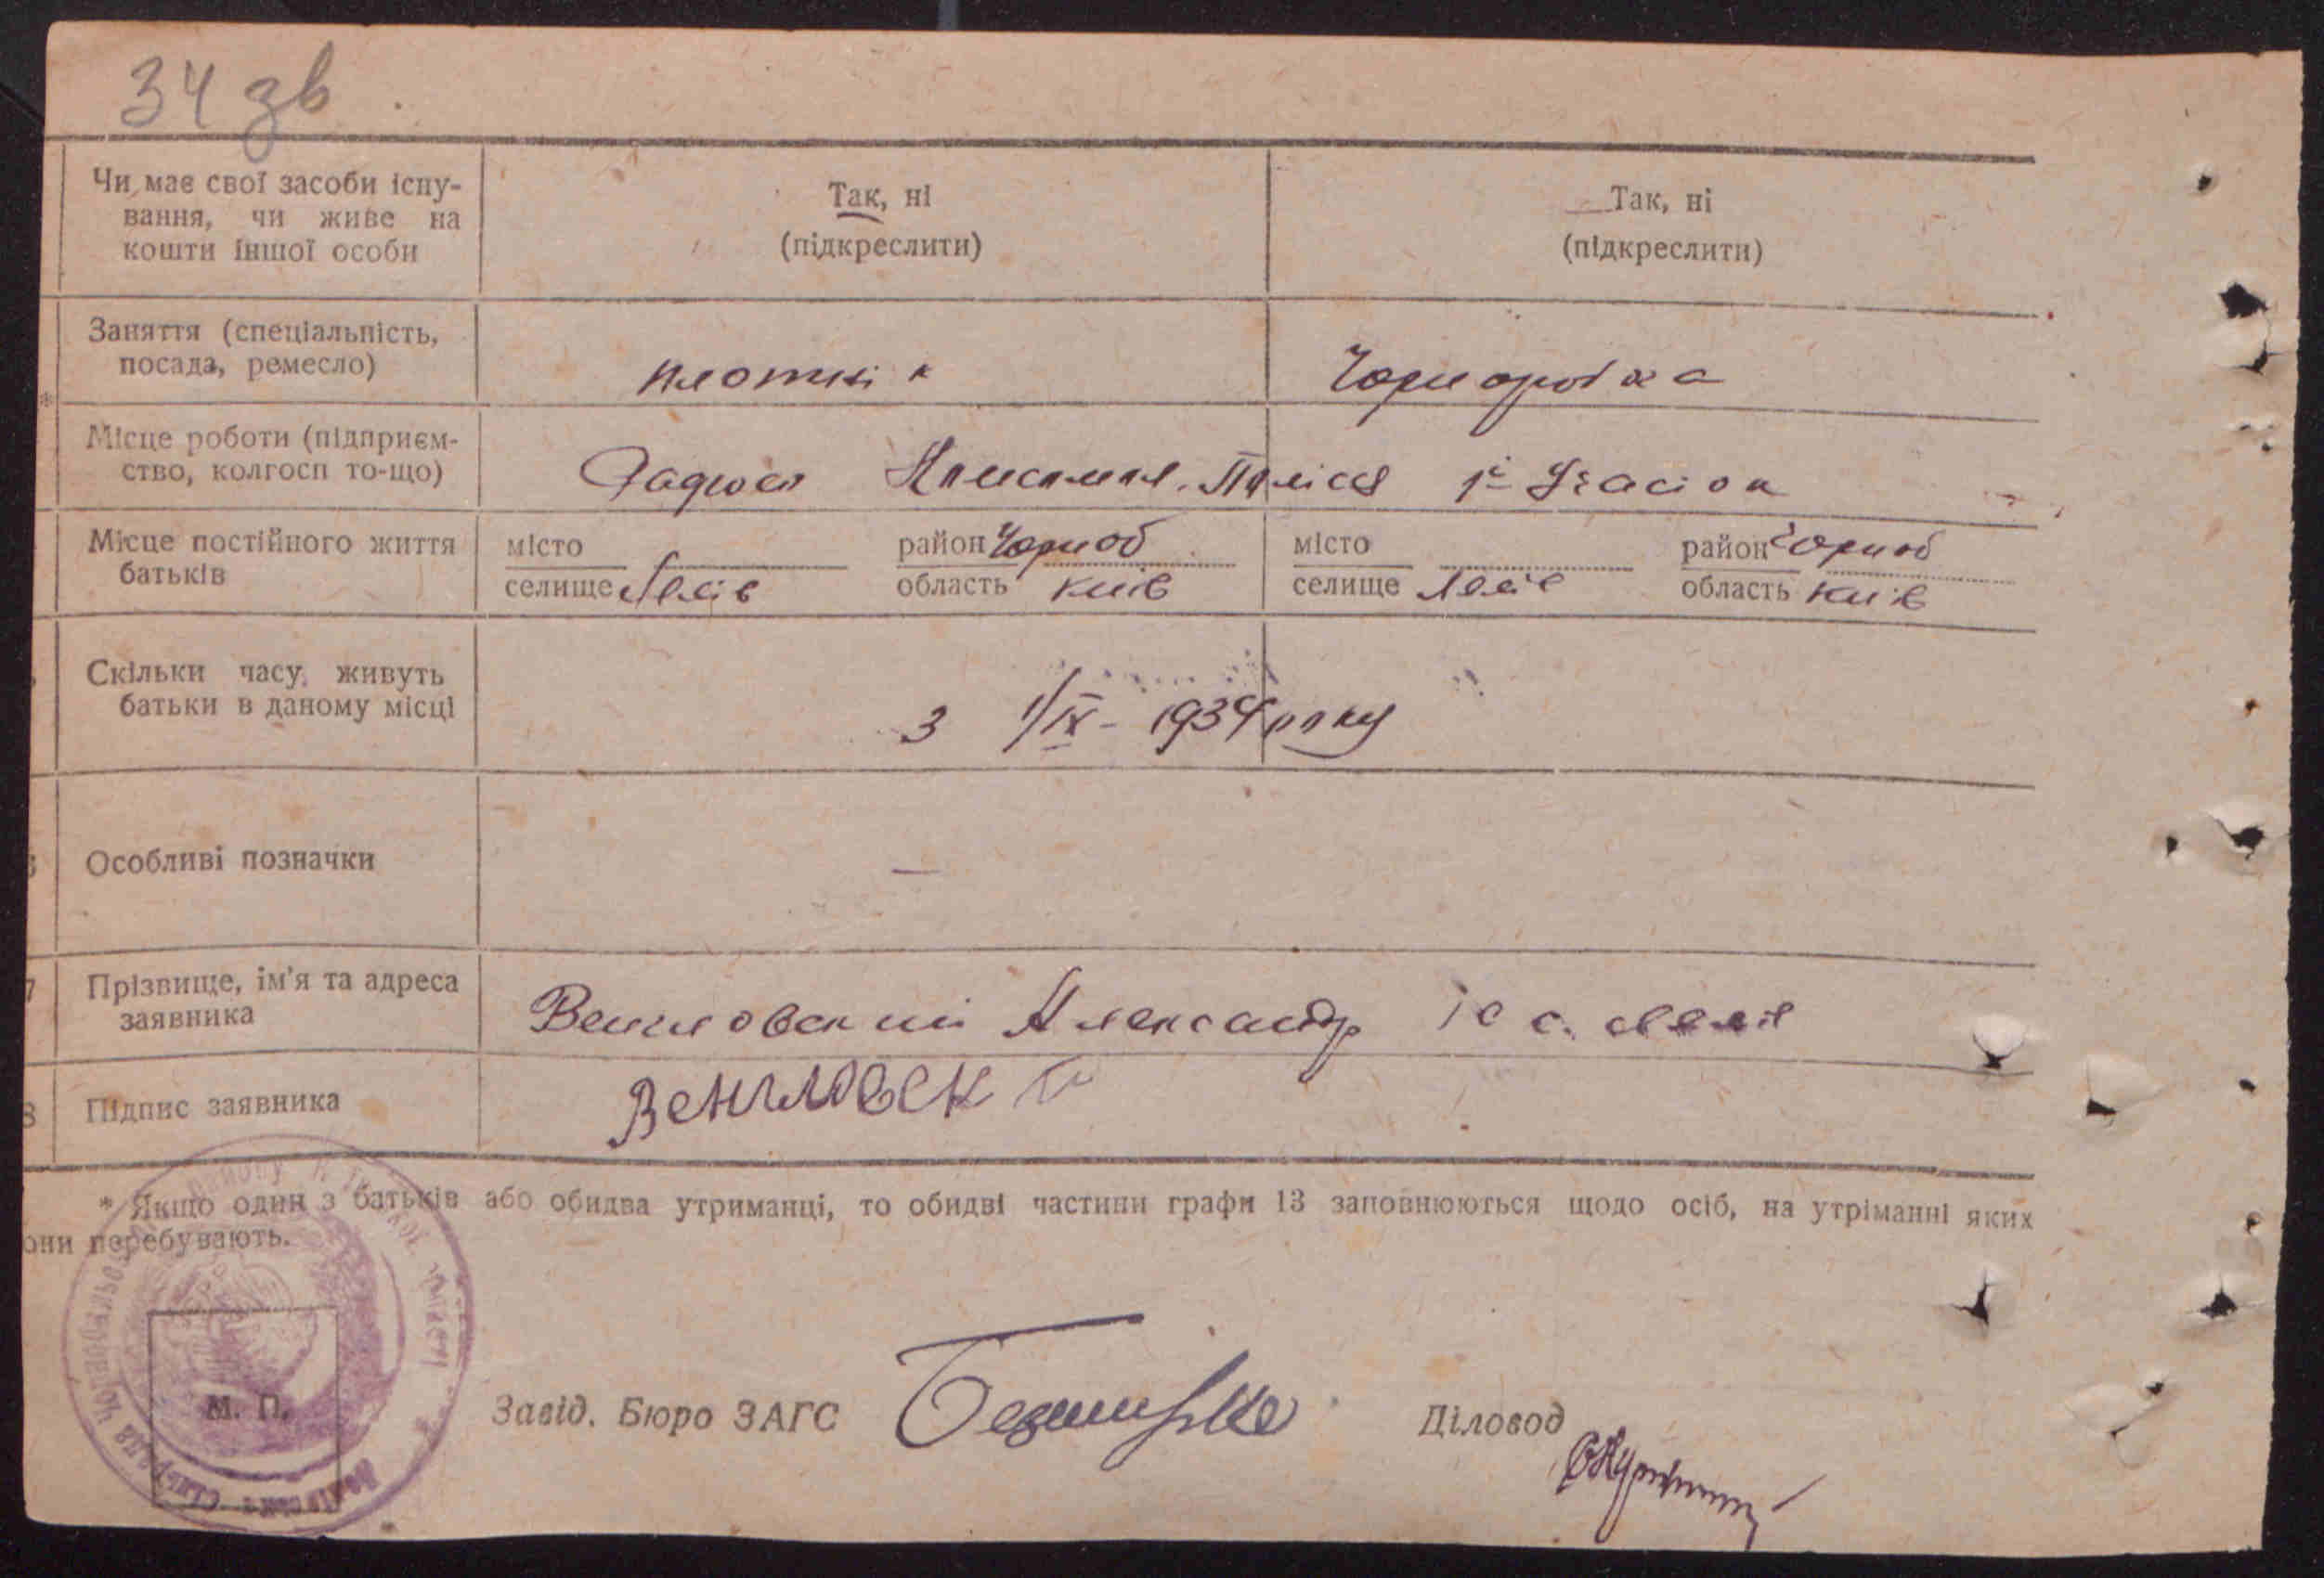 34 зв
Чи має свої засоби існу-
вання, чи живе на
кошти іншої особи
Так, ні
(підкреслити)
Так, ні
(підкреслити)
Заняття (спеціальність,
посада, ремесло)
плотнік
Чорноробка
Місце роботи (підприєм-
ство, колгосп то-що)
1ї
Місце постійного життя
батьків
місто
селище Лелів
район Чорноб
область Київ
місто
селище Лелів
район Чорноб
область Київ
Скільки часу живуть
батьки в даному місці
З 1/IX - 1934 року
Особливі позначки
—
7 Прізвище, ім'я та адреса
заявника
Венгловский Александр с. Лелів
8 Підпис заявника
Венгловск
* Якщо один з батьків або обидва утриманці, то обидві частини графи 13 заповнюються щодо осіб, на утріманні яких
они перебувають.
М. П.
Завід. Бюро ЗАГС
Діловод